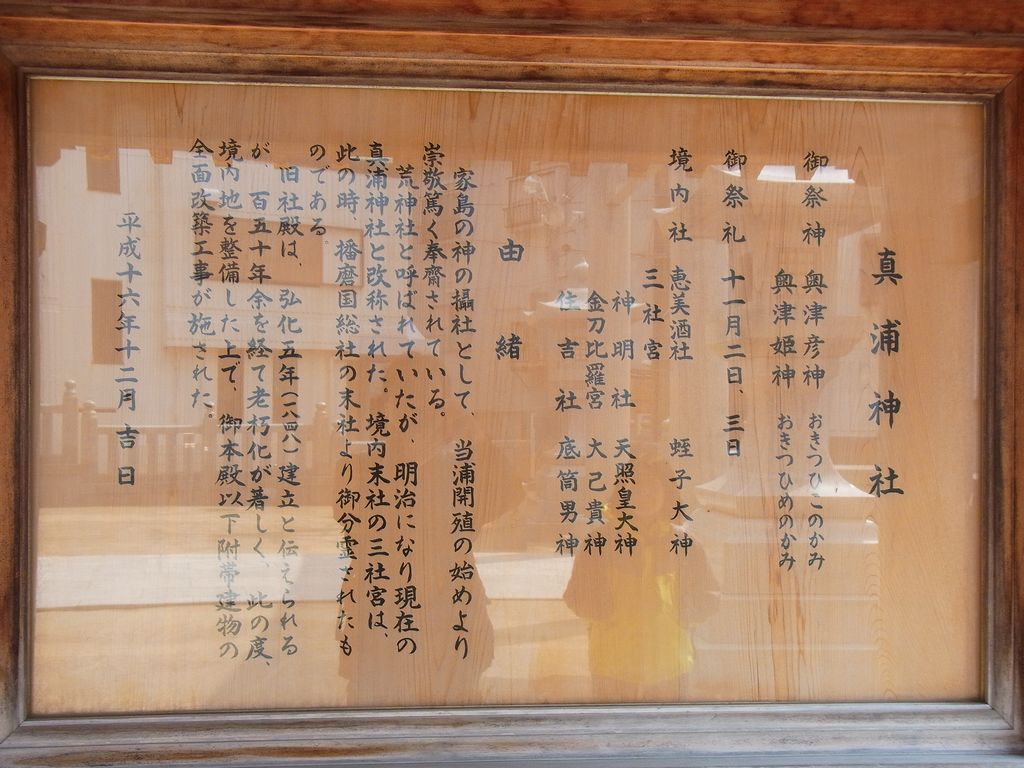 真浦神社
御祭神 奥津彦神 おきつひこのかみ
奥津姫神 おきつひめのかみ
御祭礼 十一月二日、三日
境内社 恵美酒社 蛭子大神
三社宮
神明社 天照皇大神
金刀比羅宮 大己貴神
住吉社 底筒男神
由緒
家島の神の攝社として、当浦開殖の始めより
崇敬篤く奉齋されている。
荒神社と呼ばれていたが、明治になり現在の
真浦神社と改称された。境内末社の三社宮は、
此の時、播磨国総社の末社より御分霊されたも
のである。
旧社殿は、弘化五年(一八四八)建立と伝えられる
が、百五十年余を経て老朽化が著しく、此の度、
境内地を整備した上で、御本殿以下附帯建物の
全面改築工事が施された。
平成十六年十二月吉日